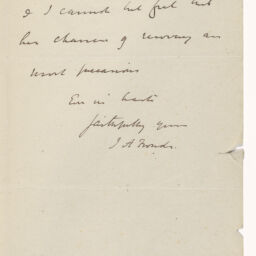 & I cannot but feel that
her chances of recovery are
most precarious
Ever in haste
faithfully yours
J A Froude.